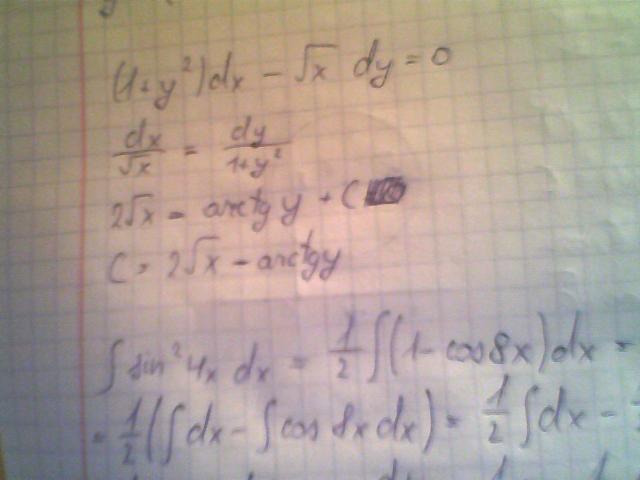 (1+y²)dx - √x dy = 0
dx/√x = dy/(1+y²)
2√x = arctg y + C
C = 2√x - arctg y
∫sin²4x dx = 1/2 ∫(1-cos8x)dx =
= 1/2 (∫dx - ∫cos 8x dx) = 1/2 ∫dx -